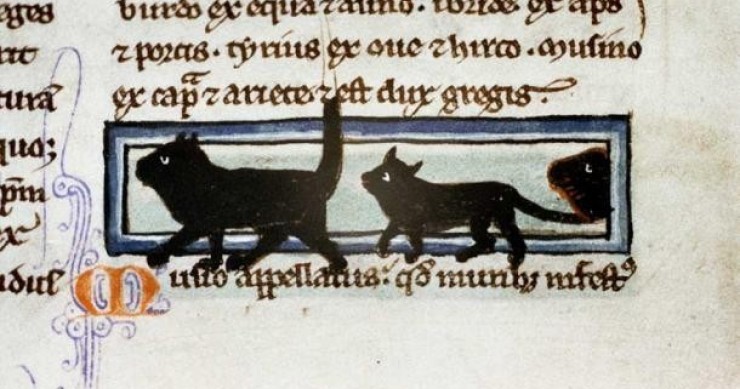 eges
rit
turā
quo;
p̄m
ex
burdo ex equa ⁊ asino. ibride ex aps
⁊ porcis. tyrius ex oue ⁊ hirco. musino
ex capͣ ⁊ ariete. ⁊ est dux gregis.
Musio appellatus. qd̄ muribꝫ infestꝰ